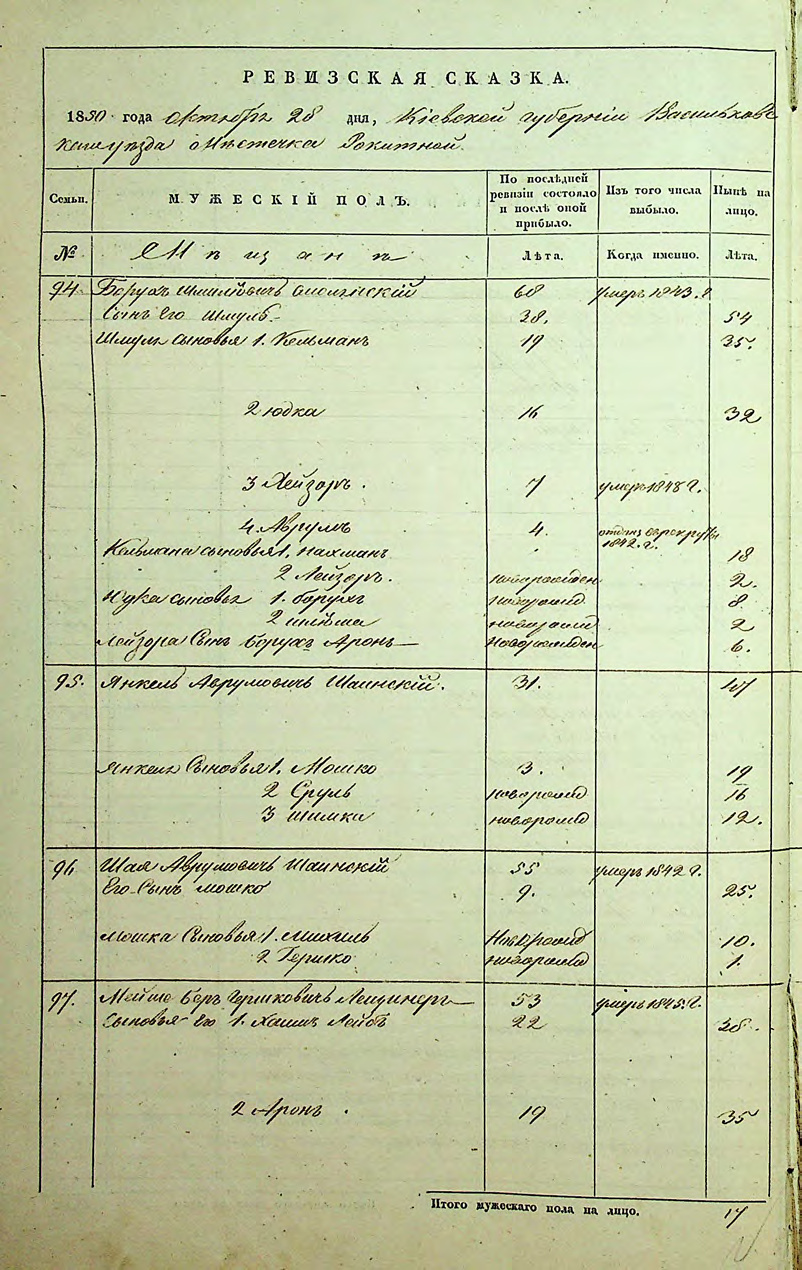 РЕВИЗСКАЯ СКАЗКА.
1850 года Октября 28 дня, Кіевской губерніи Васильков
скаго уѣзда о Мѣстечка Рокитной.
Семьи. МУЖЕСКІЙ ПОЛЪ. По послѣдней ревизіи состояло и послѣ оной прибыло. Изъ того числа выбыло. Нынѣ на лицо.
№ Мѣщанъ Лѣта. Когда именно. Лѣта.
94 Борухъ Шмилювичъ 60 умеръ 1843.г
Сынъ Его Шмуль 38. 54
Шмуля Сыновья 1. Кельманъ 19 35.
2 Юдка 16 32
3 Лейзоръ. 7 умеръ 1848 г.
4 Аврумъ 4. отданъ въ рекруты 1842.г.
Кельмана сыновья 1. Нахманъ 18
2 Лейзоръ. новорожден 2.
Юдка сыновья 1. Борухъ новорожд 8
2 новорожд 2
Лейзора Сынъ Борухъ Аронъ Новорожден 6.
95. Янкель Аврумовичъ Шаинскій. 31. 47
Янкеля Сыновья 1. Мошко 3. 19
2 Сруль новорожд 16
3 Шимка новорожд 12.
96 Шая Аврумовичъ Шаинскій 55 умеръ 1842 г.
Его Сынъ Мошко 9. 25.
Мошка Сыновья 1. Михиль Новорожд 10.
2 Гершко новорожд 1.
97. Мейше Беръ Гершковичъ 53 умеръ 1845.г.
Сыновья Его 1. Хаимъ Лейбъ 22 38.
2 Аронъ 19 35
Итого мужескаго пола на лицо. 17